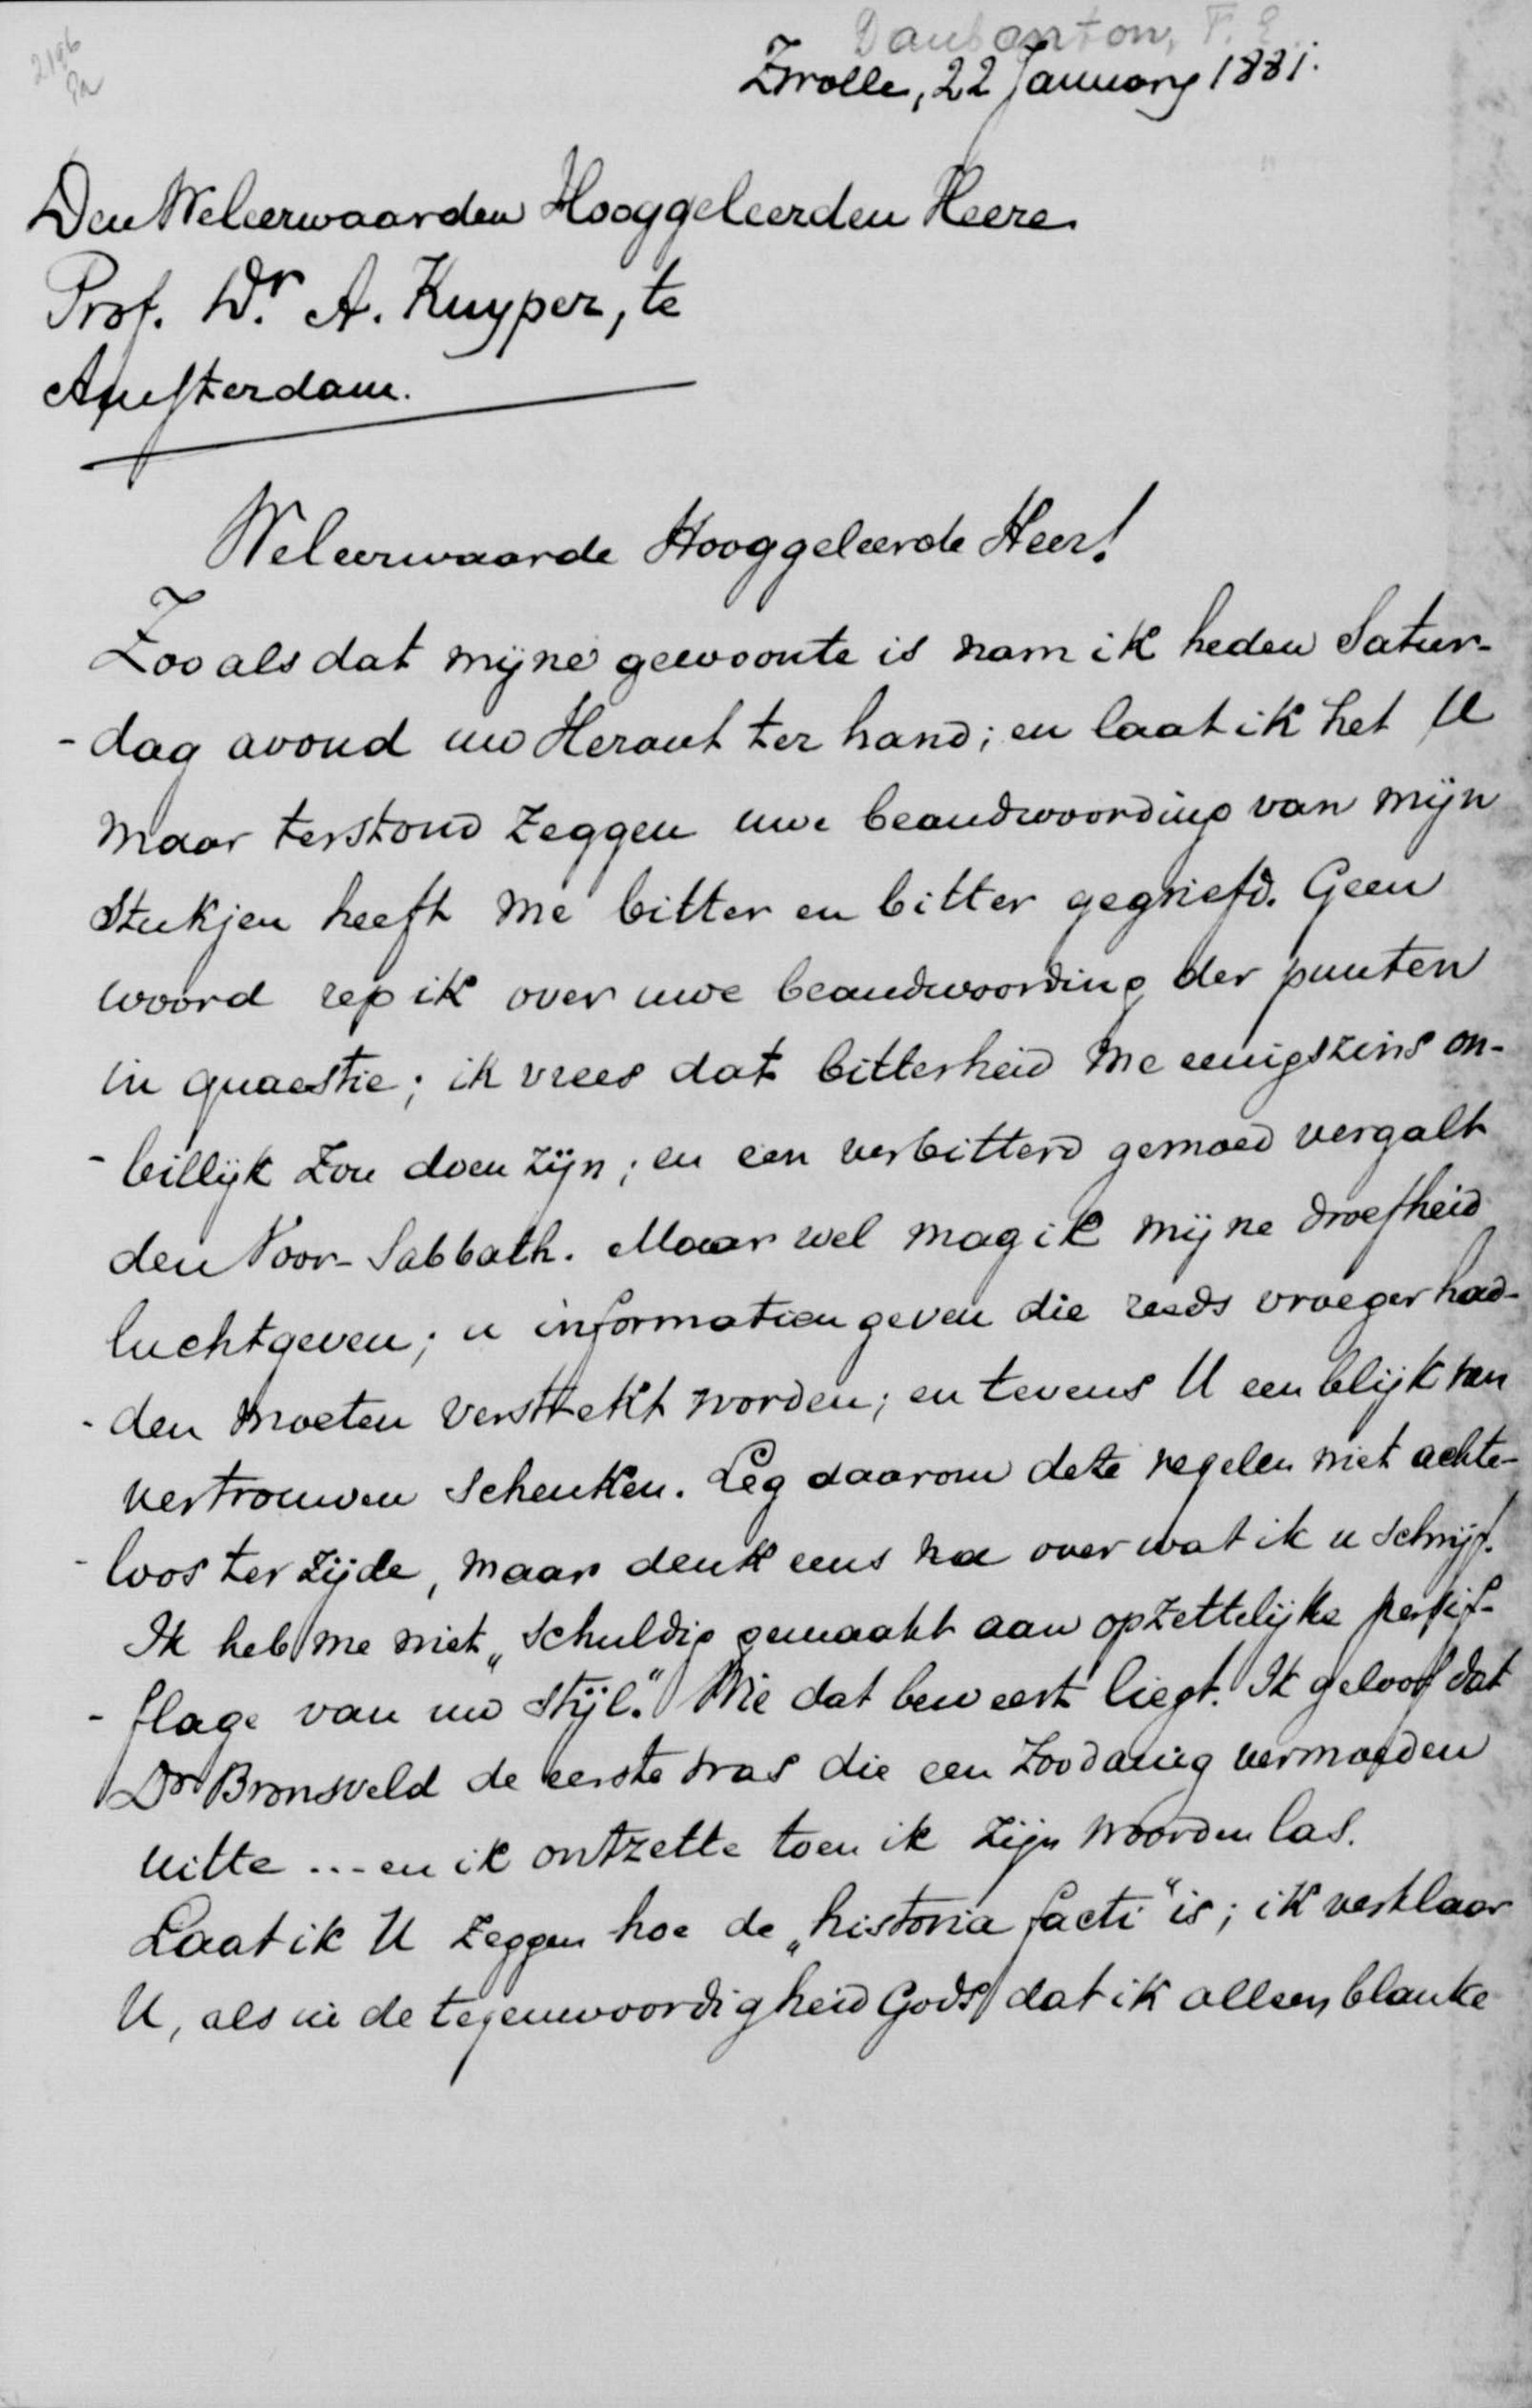 2196
Daubanton, F. E.
Zwolle, 22 January 1881.
Den Weleerwaarden Hooggeleerden Heere
Prof. Dr. A. Kuyper, te
Amsterdam.
Weleerwaarde Hooggeleerde Heer!
Zooals dat mijne gewoonte is nam ik heden Satur-
-dag avond uw Heraut ter hand; en laat ik het U
maar terstond zeggen uwe beandwoording van mijn
stukjen heeft me bitter en bitter gegriefd. Geen
woord rep ik over uwe beandwoording der punten
in quaestie; ik vrees dat bitterheid me eenigszins on-
-billijk zou doen zijn; en een verbitterd gemoed vergalt
den Voor-Sabbath. Maar wel mag ik mijne droefheid
luchtgeven; u informatien geven die reeds vroeger had-
-den moeten verstrekt worden; en tevens U een blijk van
vertrouwen schenken. Leg daarom deze regelen niet achte-
-loos ter zijde, maar denk eens na over wat ik u schrijf.
Ik heb me niet „schuldig gemaakt aan opzettelijke persif-
-flage van uw stijl." Wie dat beweert liegt. Ik geloof dat
Dr Bronsveld de eerste was die een zoodanig vermoeden
uitte ... en ik ontzette toen ik zijn woorden las.
Laat ik U zeggen hoe de „historia facti" is; ik verklaar
U, als in de tegenwoordigheid Gods, dat ik alleen blanke